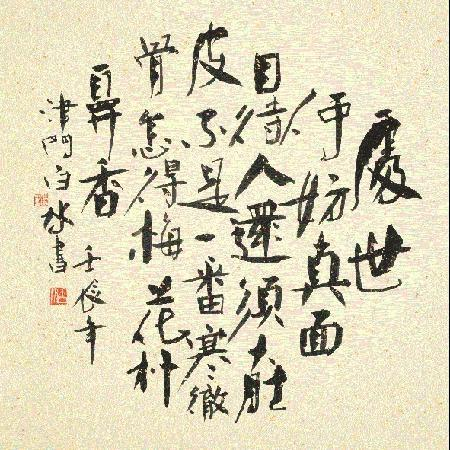 處世
何妨真面
目待人還須大肚
皮不是一番寒徹
骨怎得梅花朴
鼻香
壬辰年
津門白書